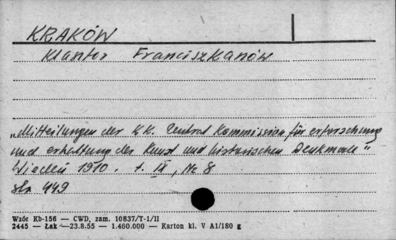 KRAKÓW
Klasztor Franciszkanów
„Mitteilungen der KK. Central Kommission für erforschung
und erhaltung der Kunst und historischen Denkmale"
Wiedeń 1910. t. IX, Nr 8
str. 449
Wzór Kb-156 — CWD, zam. 10837/T-1/II
2445 — Łak —23.8.55 — 1.460.000 — Karton kl. V A1/180 g